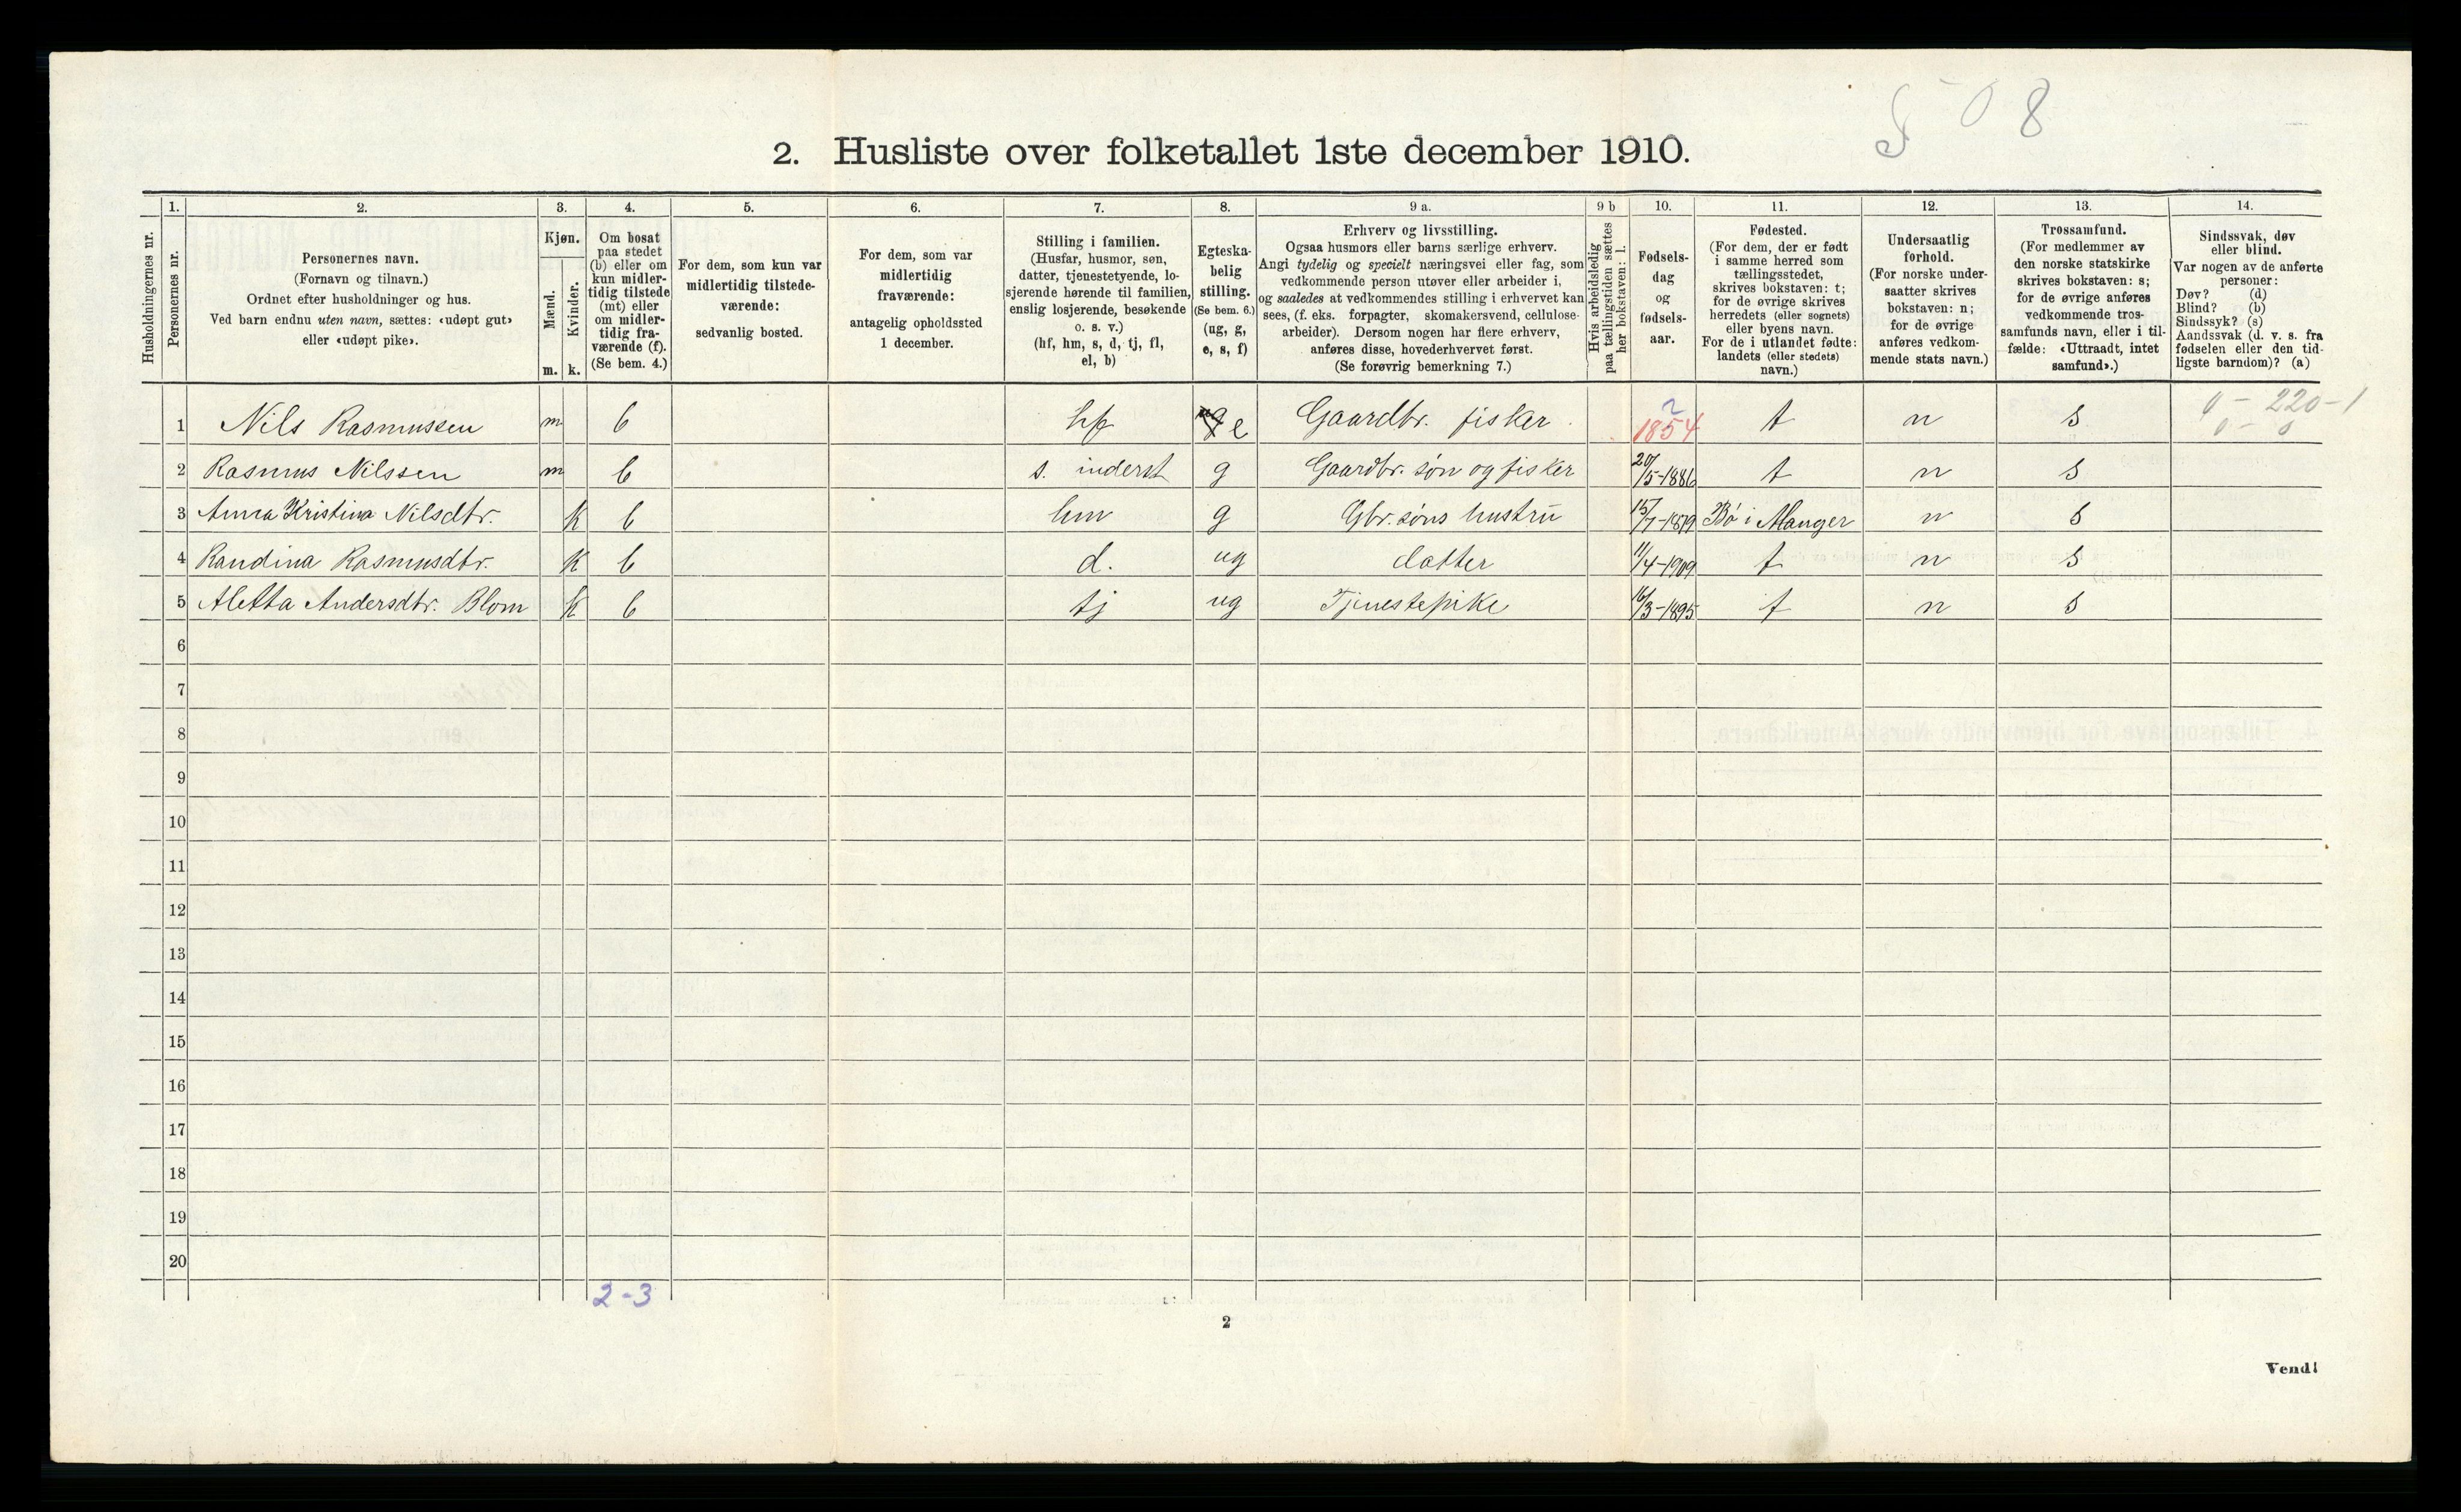 8
2. Husliste over folketallet 1ste december 1910.
Husholdningernes nr.
1.
Personernes nr.
2.
Personernes navn.
(Fornavn og tilnavn.)
Ordnet efter husholdninger og hus.
Ved barn endnu uten navn, sættes: «udøpt gut»
eller «udøpt pike».
3.
Kjøn.
Mænd.
Kvinder.
m. k.
4.
Om bosat
paa stedet
(b) eller om
kun midler-
tidig tilstede
(mt) eller
om midler-
tidig fra-
værende (f).
(Se bem. 4.)
5.
For dem, som kun var
midlertidig tilstede-
værende:
sedvanlig bosted.
6.
For dem, som var
midlertidig
fraværende:
antagelig opholdssted
1 december.
7.
Stilling i familien.
(Husfar, husmor, søn,
datter, tjenestetyende, lo-
sjerende hørende til familien,
enslig losjerende, besøkende
o. s. v.)
(hf, hm, s, d, tj, fl,
el, b)
8.
Egteska-
belig
stilling.
(Se bem. 6.)
(ug, g,
e, s, f)
9 a.
Erhverv og livsstilling.
Ogsaa husmors eller barns særlige erhverv.
Angi tydelig og specielt næringsvei eller fag, som
vedkommende person utøver eller arbeider i,
og saaledes at vedkommendes stilling i erhvervet kan
sees, (f. eks. forpagter, skomakersvend, cellulose-
arbeider). Dersom nogen har flere erhverv,
anføres disse, hovederhvervet først.
(Se forøvrig bemerkning 7.)
9 b
Hvis arbeidsledig
paa tællingstiden sættes
her bokstaven: l.
10.
Fødsels-
dag
og
fødsels-
aar.
11.
Fødested.
(For dem, der er født
i samme herred som
tællingsstedet,
skrives bokstaven: t;
for de øvrige skrives
herredets (eller sognets)
eller byens navn.
For de i utlandet fødte:
landets (eller stedets)
navn.)
12.
Undersaatlig
forhold.
(For norske under-
saatter skrives
bokstaven: n;
for de øvrige
anføres vedkom-
mende stats navn.)
13.
Trossamfund.
(For medlemmer av
den norske statskirke
skrives bokstaven: s;
for de øvrige anføres
vedkommende tros-
samfunds navn, eller i til-
fælde: «Uttraadt, intet
samfund».)
14.
Sindssvak, døv
eller blind.
Var nogen av de anførte
personer:
Døv? (d)
Blind? (b)
Sindssyk? (s)
Aandssvak (d. v. s. fra
fødselen eller den tid-
ligste barndom)? (a)
1 Nils Rasmussen m b hf e Gaardbr. fisker 1854 t n s 0 - 220-1
0 - 0
2 Rasmus Nilssen m b s. inderst g Gaardbr. søn og fisker 20/5-1886 t n s
3 Anna Kristina Nilsdtr. k b hm g Gbr. søns hustru 15/7-1879 Bø i Manger n s
4 Randina Rasmusdtr. k b d. ug datter 11/4-1909 t n s
5 Aletta Andersdtr. Blom k b tj ug Tjenestepike 16/3-1895 t n s
6
7
8
9
10
11
12
13
14
15
16
17
18
19
20
2-3
2
Vend!